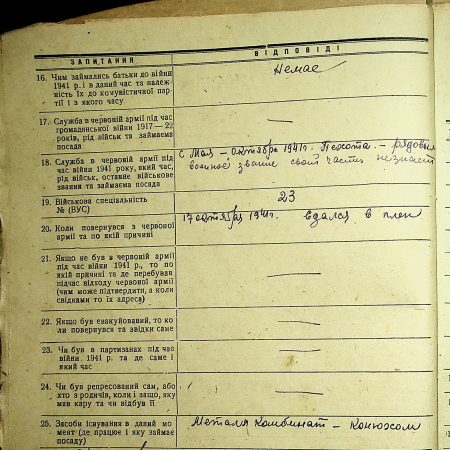 ЗАПИТАННЯ
ВІДПОВІДІ
16. Чим займались батьки до війни
1941 р. і в даний час та належ-
ність їх до комуністичної пар-
тії і з якого часу
Немає
17. Служба в червоній армії під час
громадянської війни 1917—22
років, рід військ та займаєма
посада
18. Служба в червоній армії під
час війни 1941 року, який час,
рід військ, останнє військове
звання та займаєма посада
С Мая — октябрь 1941г. Пехота. — рядовый
военное звание своей части незнает
19. Військова спеціальність
№ (ВУС)
23
20. Коли повернувся з червоної
армії та по якій причині
17 октября 1941г. вдался в плен
21. Якщо не був в червоній армії
під час війни 1941 р., то по
якій причині та де перебував
підчас відходу червоної армії
(чим може підтвердити, а коли
свідками то їх адреса)
22. Якщо був евакуйований, то ко
ли повернувся та звідки саме
23. Чи був в партизанах під час
війни 1941 р. та де саме і
який час
24. Чи був репресований сам, або
хто з родичів, коли і защо, яку
мав кару та чи відбув її
25. Засоби існування в даний мо
мент (де працює і яку займає
посаду)
Металл Комбинат — Конюхом